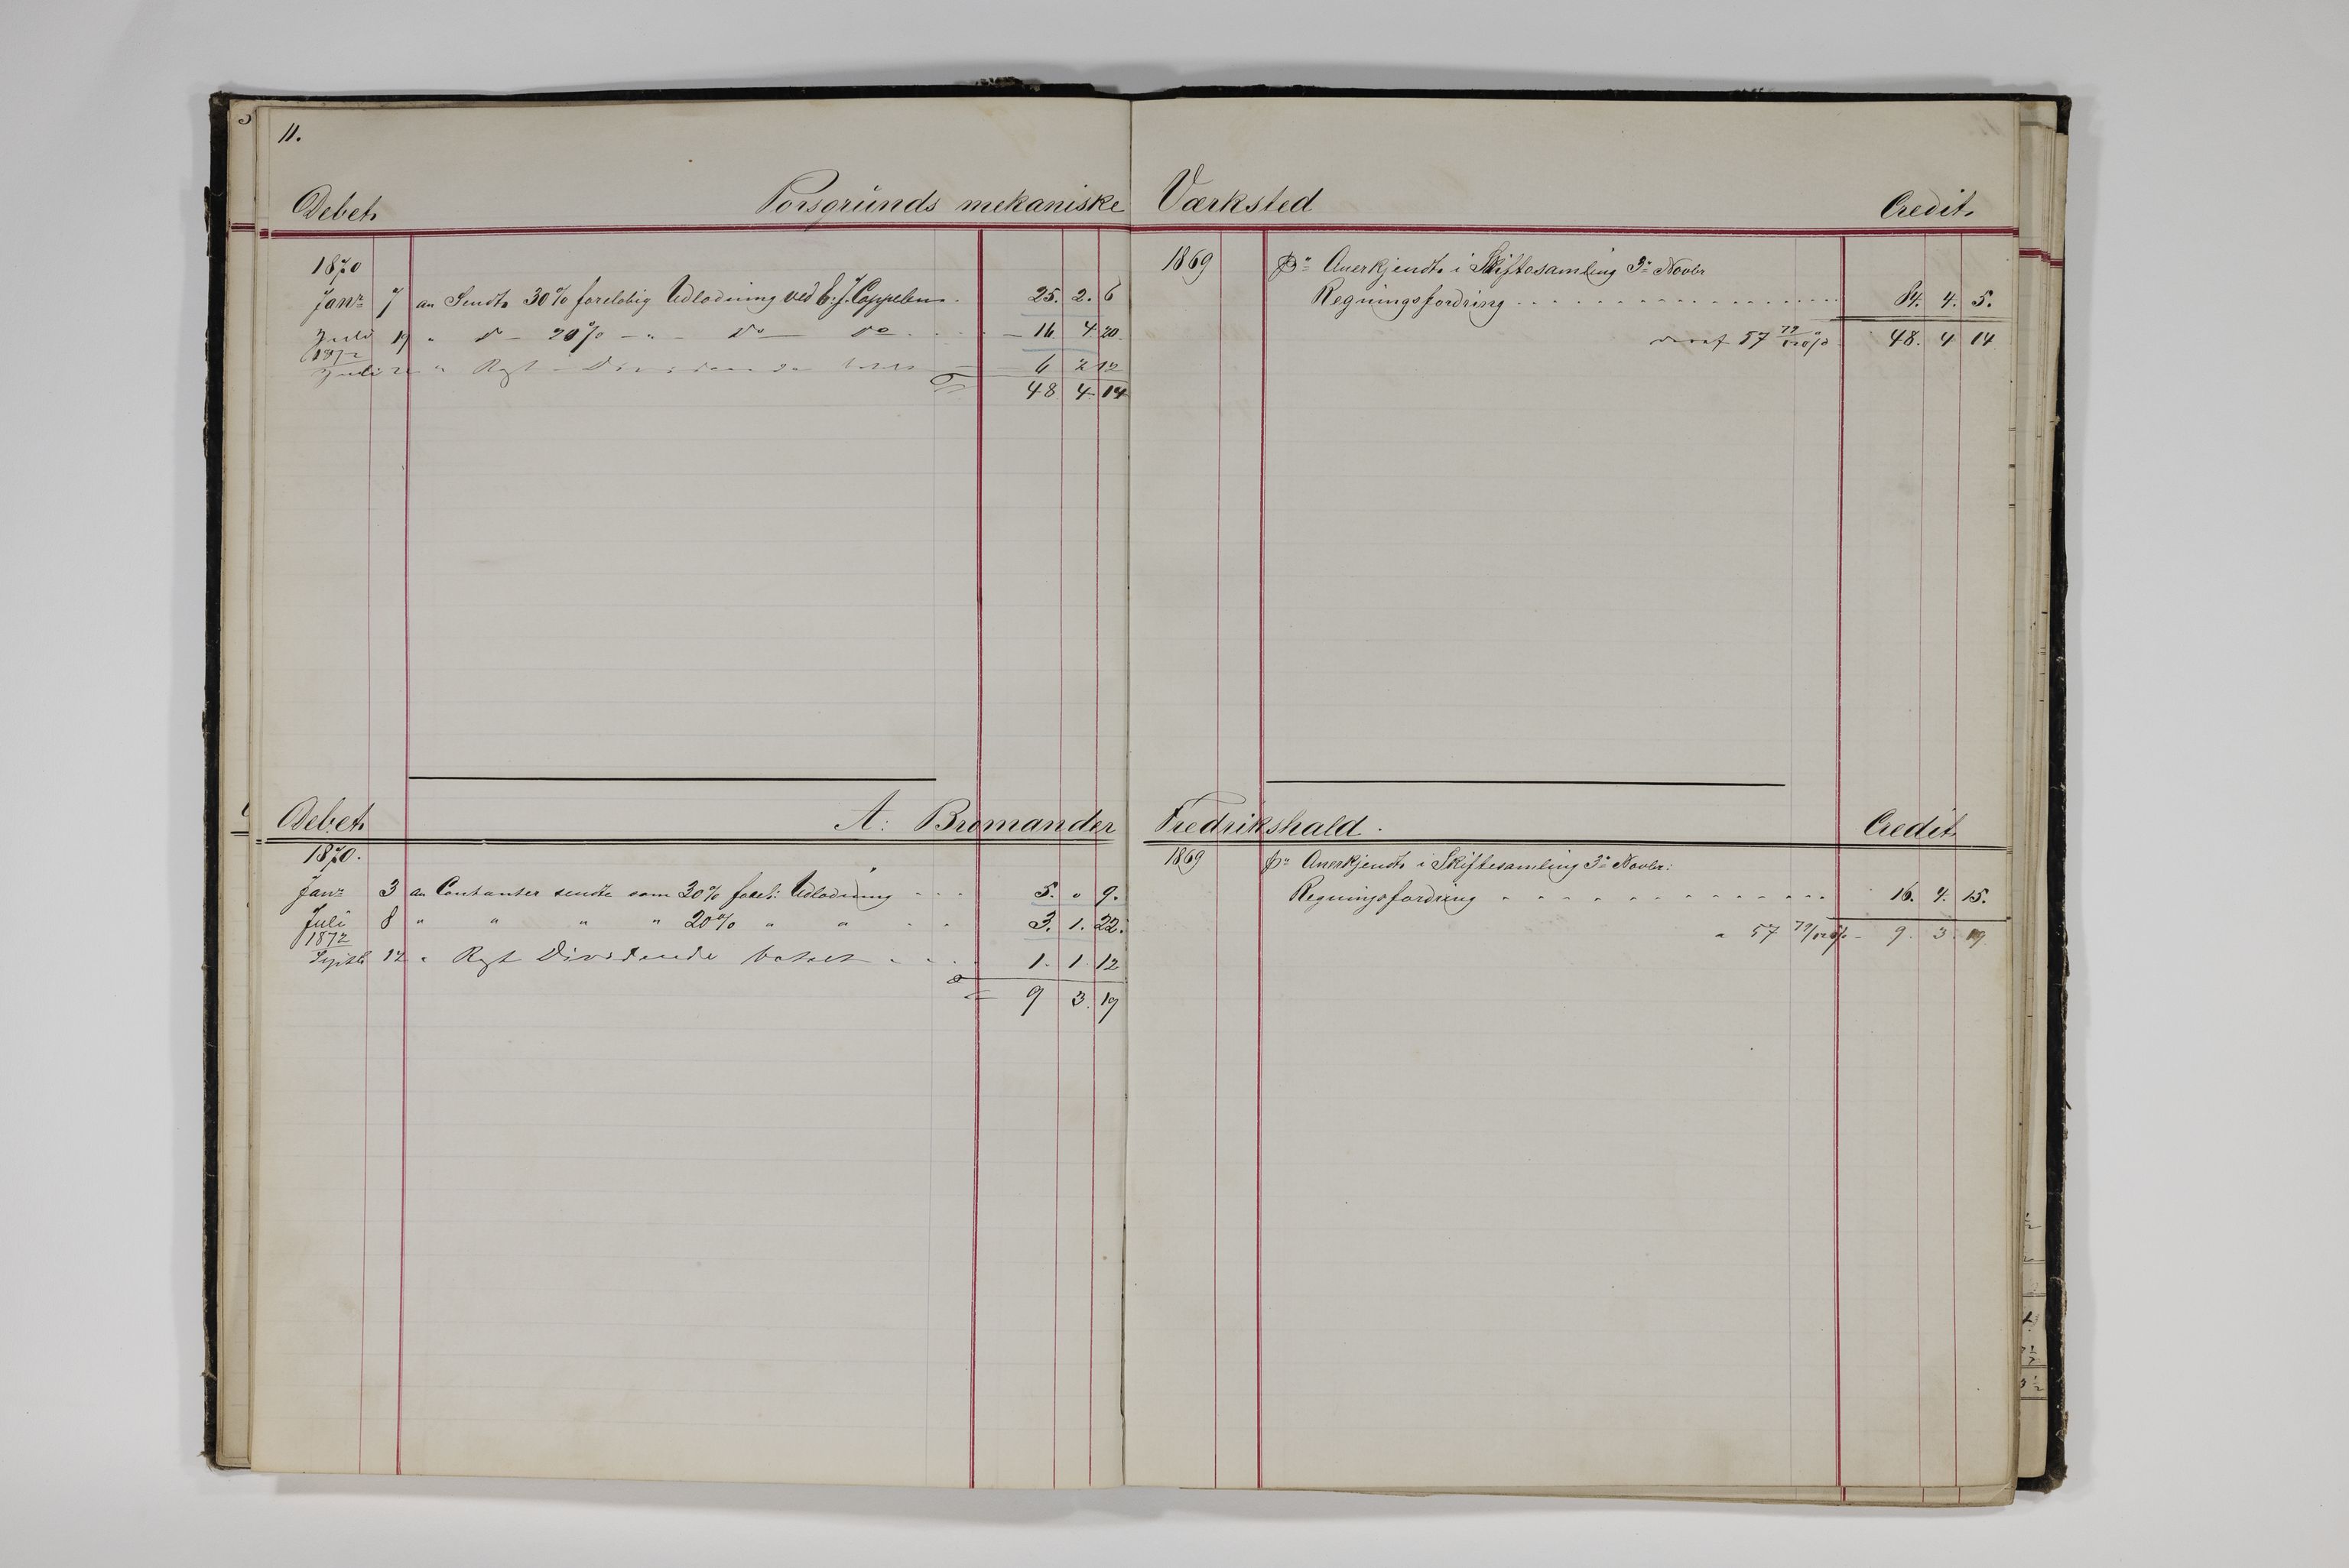 11.
Debet. Porsgrunds mekaniske Værksted Credit.
1870
Janr 7 an Sendt 30% foreløbig Udlodning ved C. J. Cappelen 25. 2. 6
Juli 19 " do - 20% - " - do - do 16 4. 20.
1872
Juli " Rest Dividende 6 2 12
48 4 14
1869 Pr Anerkjendt i Skiftesamling 3die Novbr
Regningsfordring 84. 4. 5.
57 79/120% 48. 4 14
Debet. A: Bromander Fredrikshald. Credit.
1870.
Janr 3 an Contanter sendte som 30% forel: Udlodning 5. 0 9.
Juli 8 " " " " 20% " " 3. 1. 22.
1872
Septb 12 " Rest Dividende betalt 1. 1 12
9 3. 19
1869 Pr Anerkjendt i Skiftesamling 3die Novbr:
Regningsfordring 16. 4. 15.
" 57 79/120% 9. 3. 19